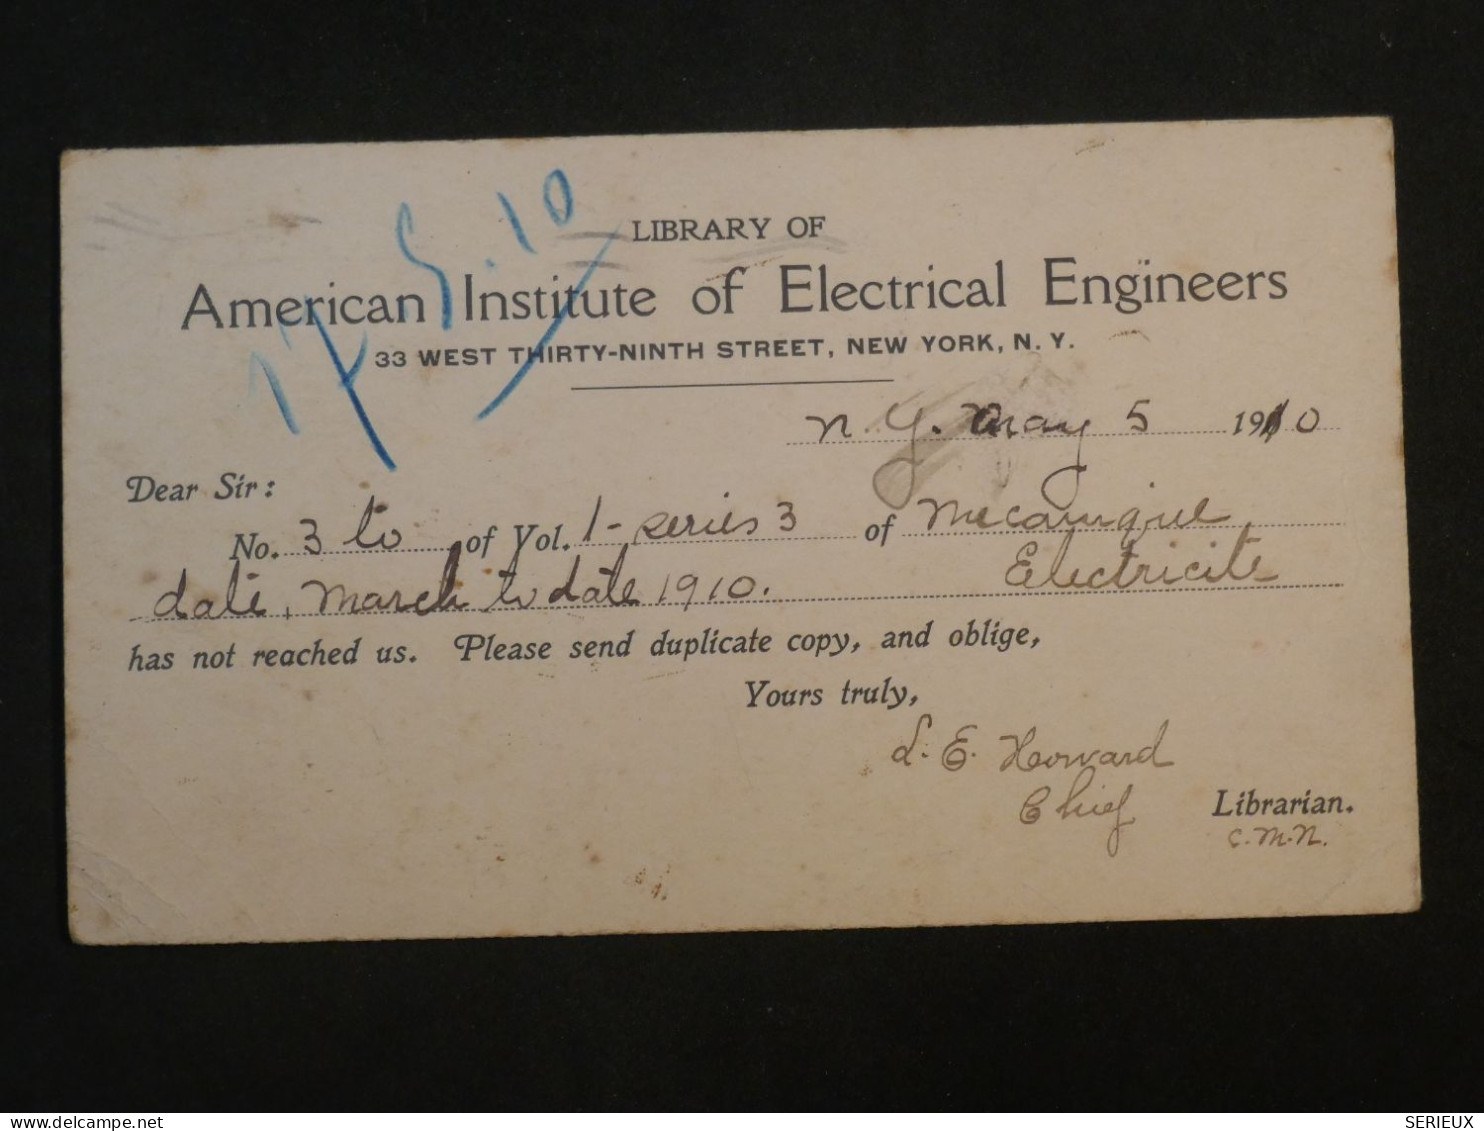 17/5.10
LIBRARY OF
American Institute of Electrical Engineers
33 WEST THIRTY-NINTH STREET, NEW YORK, N. Y.
N.Y. May 5 1910
Dear Sir:
No. 3 to of Vol. 1- series 3 of Mecanique
date, March to date 1910. Electricite
has not reached us. Please send duplicate copy, and oblige,
Yours truly,
L. E. Howard
Chief Librarian.
C.M.N.
delcampe.net
SERIEUX